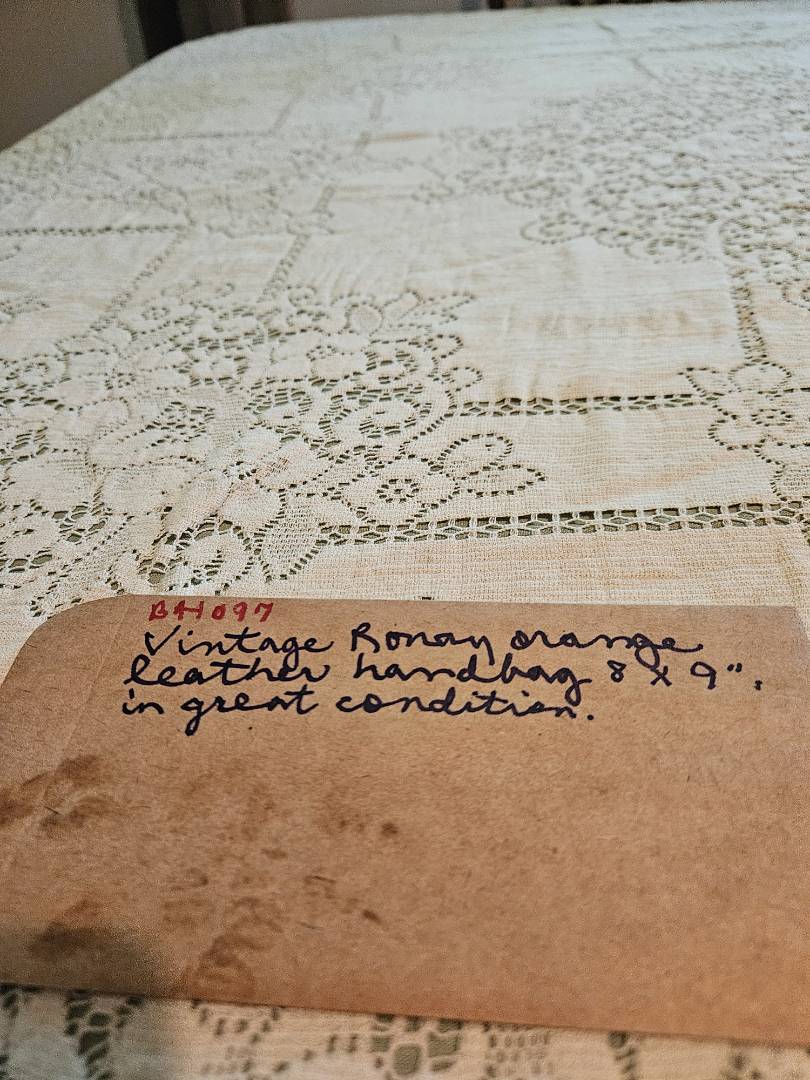 BH097
Vintage Ronay orange
leather handbag 8 x 9",
in great condition.